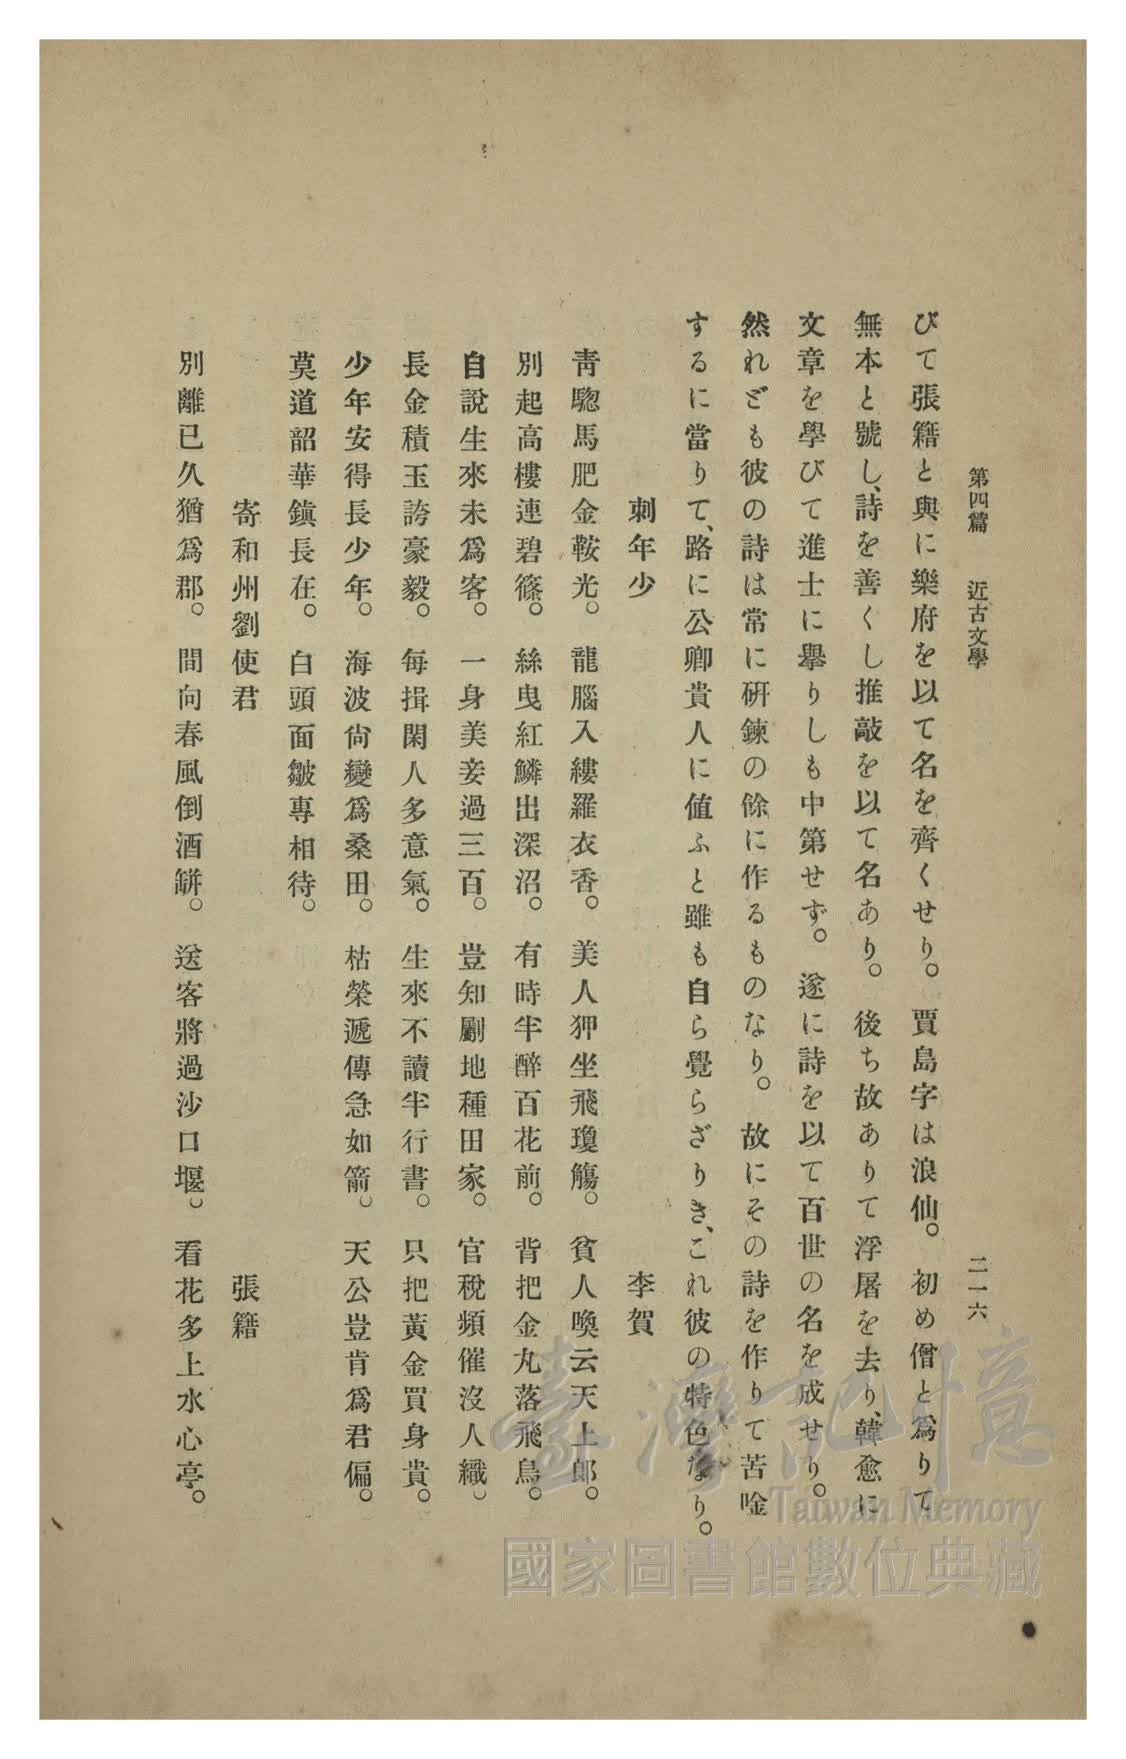 第四篇 近古文學 二一六
びて張籍と與に樂府を以て名を齊くせり。賈島字は浪仙。初め僧と爲りて
無本と號し、詩を善くし推敲を以て名あり。後ち故ありて浮屠を去り、韓愈に
文章を學びて進士に擧りしも中第せず。遂に詩を以て百世の名を成せり。
然れども彼の詩は常に硏鍊の餘に作るものなり。故にその詩を作りて苦唫
するに當りて、路に公卿貴人に値ふと雖も自ら覺らざりき、これ彼の特色なり。
刺年少 李賀
靑驄馬肥金鞍光。龍腦入縷羅衣香。美人狎坐飛瓊觴。貧人喚云天上郞。
別起高樓連碧篠。絲曳紅鱗出深沼。有時半醉百花前。背把金丸落飛鳥。
自說生來未爲客。一身美妾過三百。豈知劚地種田家。官稅頻催沒人織。
長金積玉誇豪毅。每揖閑人多意氣。生來不讀半行書。只把黃金買身貴。
少年安得長少年。海波尙變爲桑田。枯榮遞傳急如箭。天公豈肯爲君偏。
莫道韶華鎭長在。白頭面皺專相待。
寄和州劉使君 張籍
別離已久猶爲郡。間向春風倒酒缾。送客將過沙口堰。看花多上水心亭。
臺灣記憶
Taiwan Memory
國家圖書館數位典藏